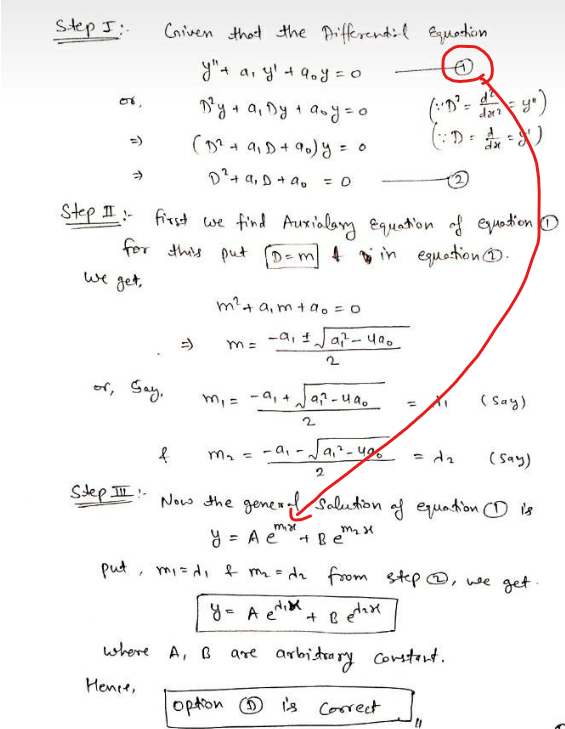 Step I :- Given that the Differential Equation
y" + a₁ y' + a₀y = 0 ——— ①
or, D²y + a₁Dy + a₀y = 0 (∵ D² = d²/dx² = y")
⇒ (D² + a₁D + a₀)y = 0 (∵ D = d/dx = y')
⇒ D² + a₁D + a₀ = 0 ——— ②
Step II :- first we find Auxialary Equation of equation ①
for this put D = m & in equation ②.
We get,
m² + a₁m + a₀ = 0
⇒ m = (-a₁ ± √(a₁² - 4a₀))/2
or, Say, m₁ = (-a₁ + √(a₁² - 4a₀))/2 = d₁ (Say)
& m₂ = (-a₁ - √(a₁² - 4a₀))/2 = d₂ (Say)
Step III :- Now the general Solution of equation ① is
y = A e^(m₁x) + B e^(m₂x)
put, m₁ = d₁ & m₂ = d₂ from step ②, we get.
y = A e^(d₁x) + B e^(d₂x)
where A, B are arbitrary constant.
Hence,
option Ⓓ is Correct